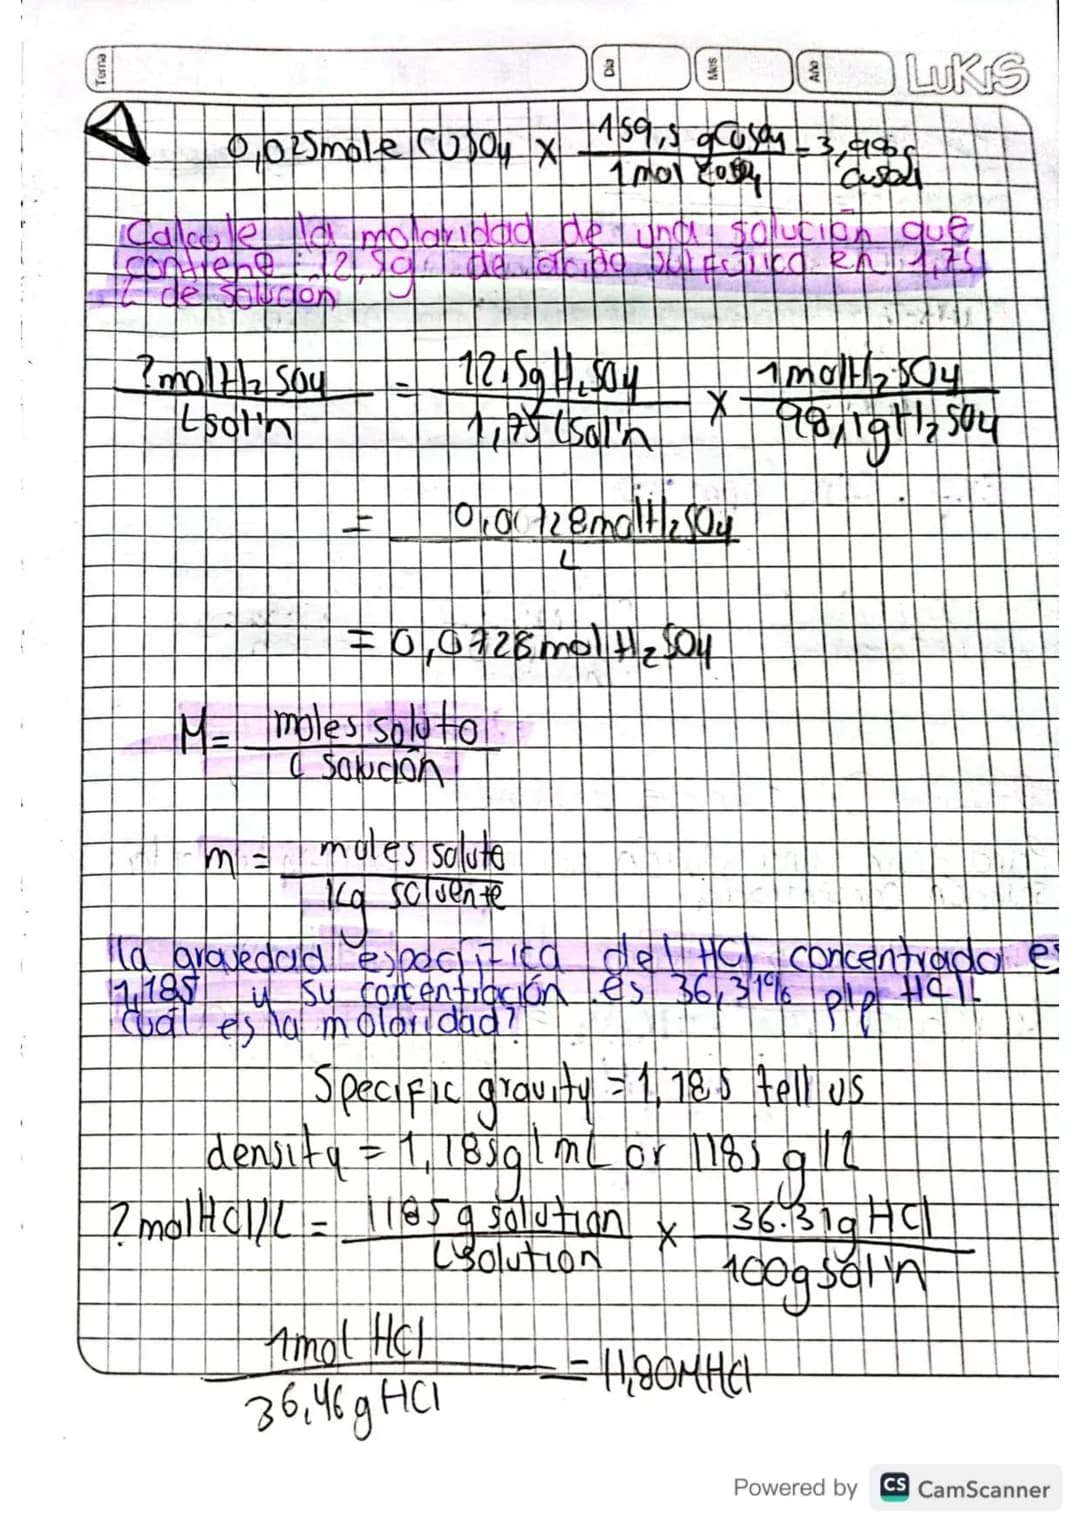 Tema Día Mes Año LUKIS
0,025mole CUSO4 x 159,5 gCuSO4 = 3,998g CuSO4
1mol CuSO4
Calcule la molaridad de una solución que
contiene 12,5g de acido sulfúrico en 1,75
L de solución
?molH2SO4 = 12,5g H2SO4 x 1molH2SO4
Lsol'n 1,75 Lsol'n 98,1gH2SO4
= molH2SO4
L
= 0,0728molH2SO4
M= moles soluto
L solución
m = moles soluto
1kg solvente
la gravedad específica del HCl concentrado es
1,185 y su concentración es 36,31% p/p HCl.
Cuál es la molaridad?
Specific gravity = 1,185 tell us
density = 1,185g/mL or 1185 g/L
?molHCl/L = 1185 g solution x 36.31g HCl
Lsolution 100g sol'n
1mol HCl = 11,80MHCl
36,46g HCl
Powered by CS CamScanner